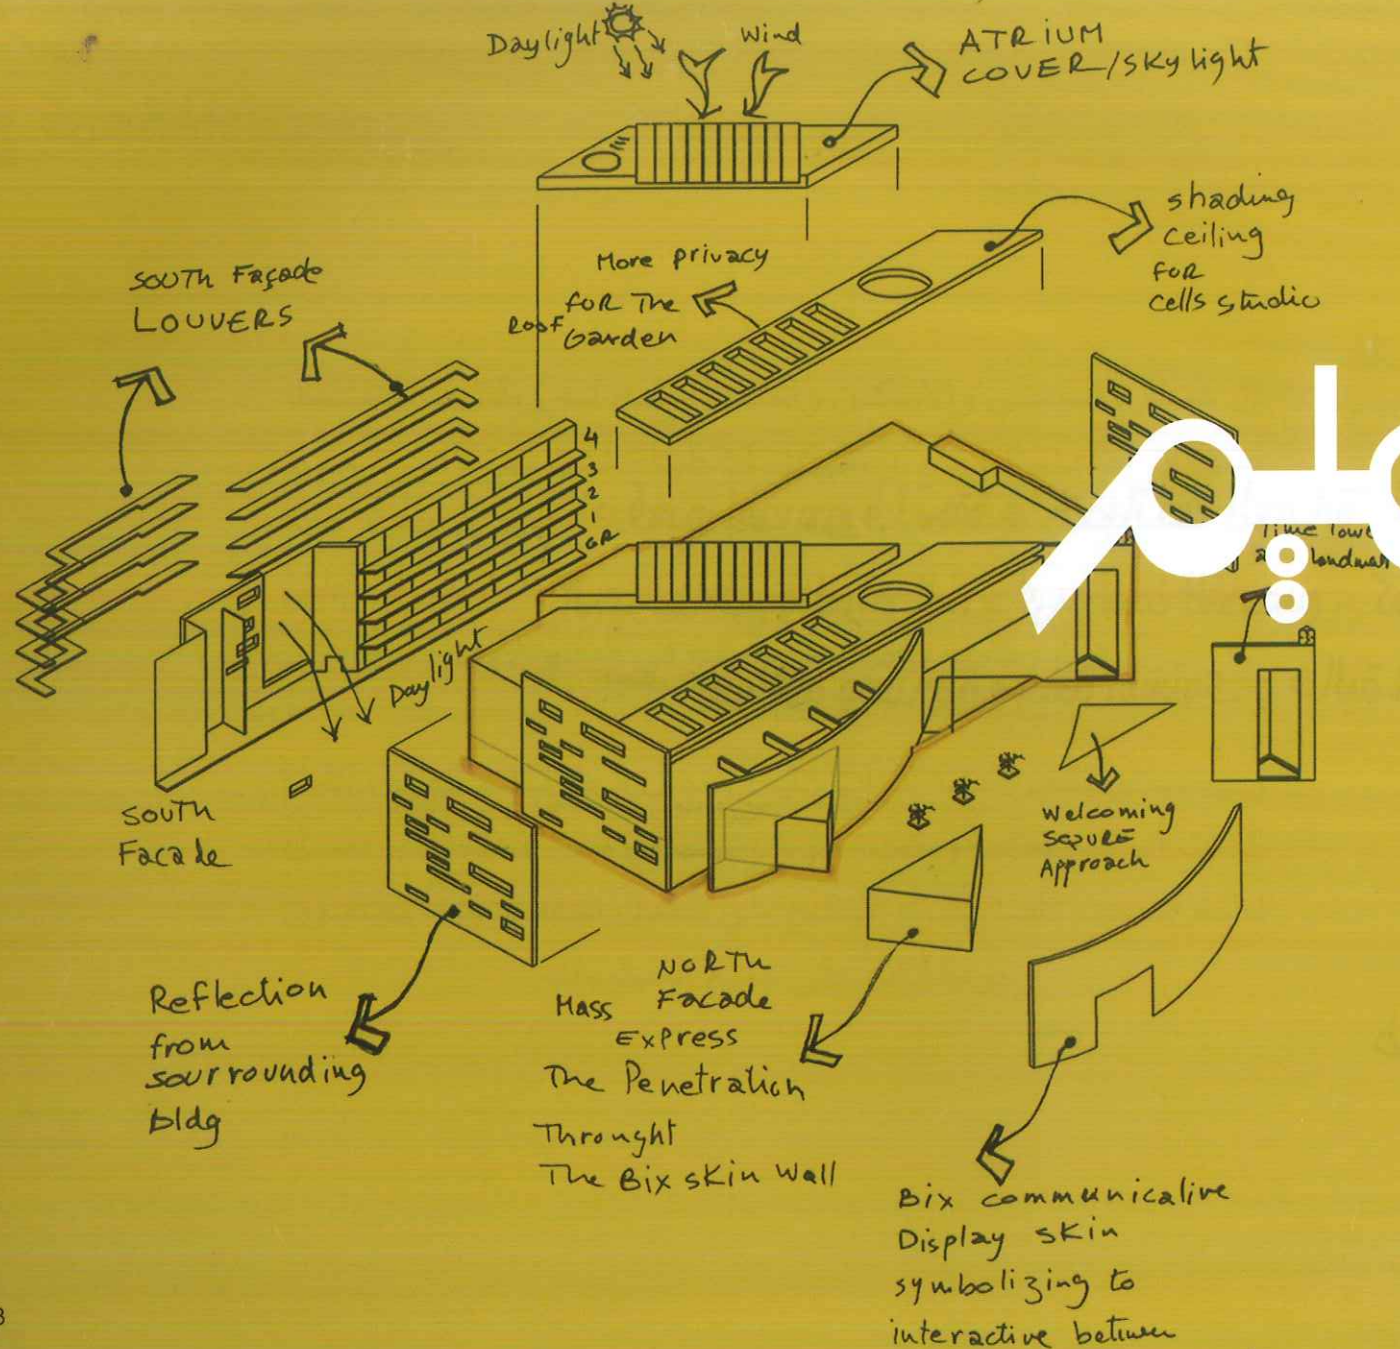 Daylight
Wind
ATRIUM
COVER/SKylight
shading
Ceiling
FOR
cells studio
More privacy
FOR The
Roof Garden
SOUTH Façade
LOUVERS
4
3
2
1
GR
Daylight
SOUTH
Facade
Time Towe
landmar
Welcoming
SEQURE
Approach
Reflection
from
sourrounding
bldg
NORTH
Mass Facade
ExPress
The Penetration
Throught
The Bix skin Wall
Bix communicative
Display skin
symbolizing to
interactive between
3